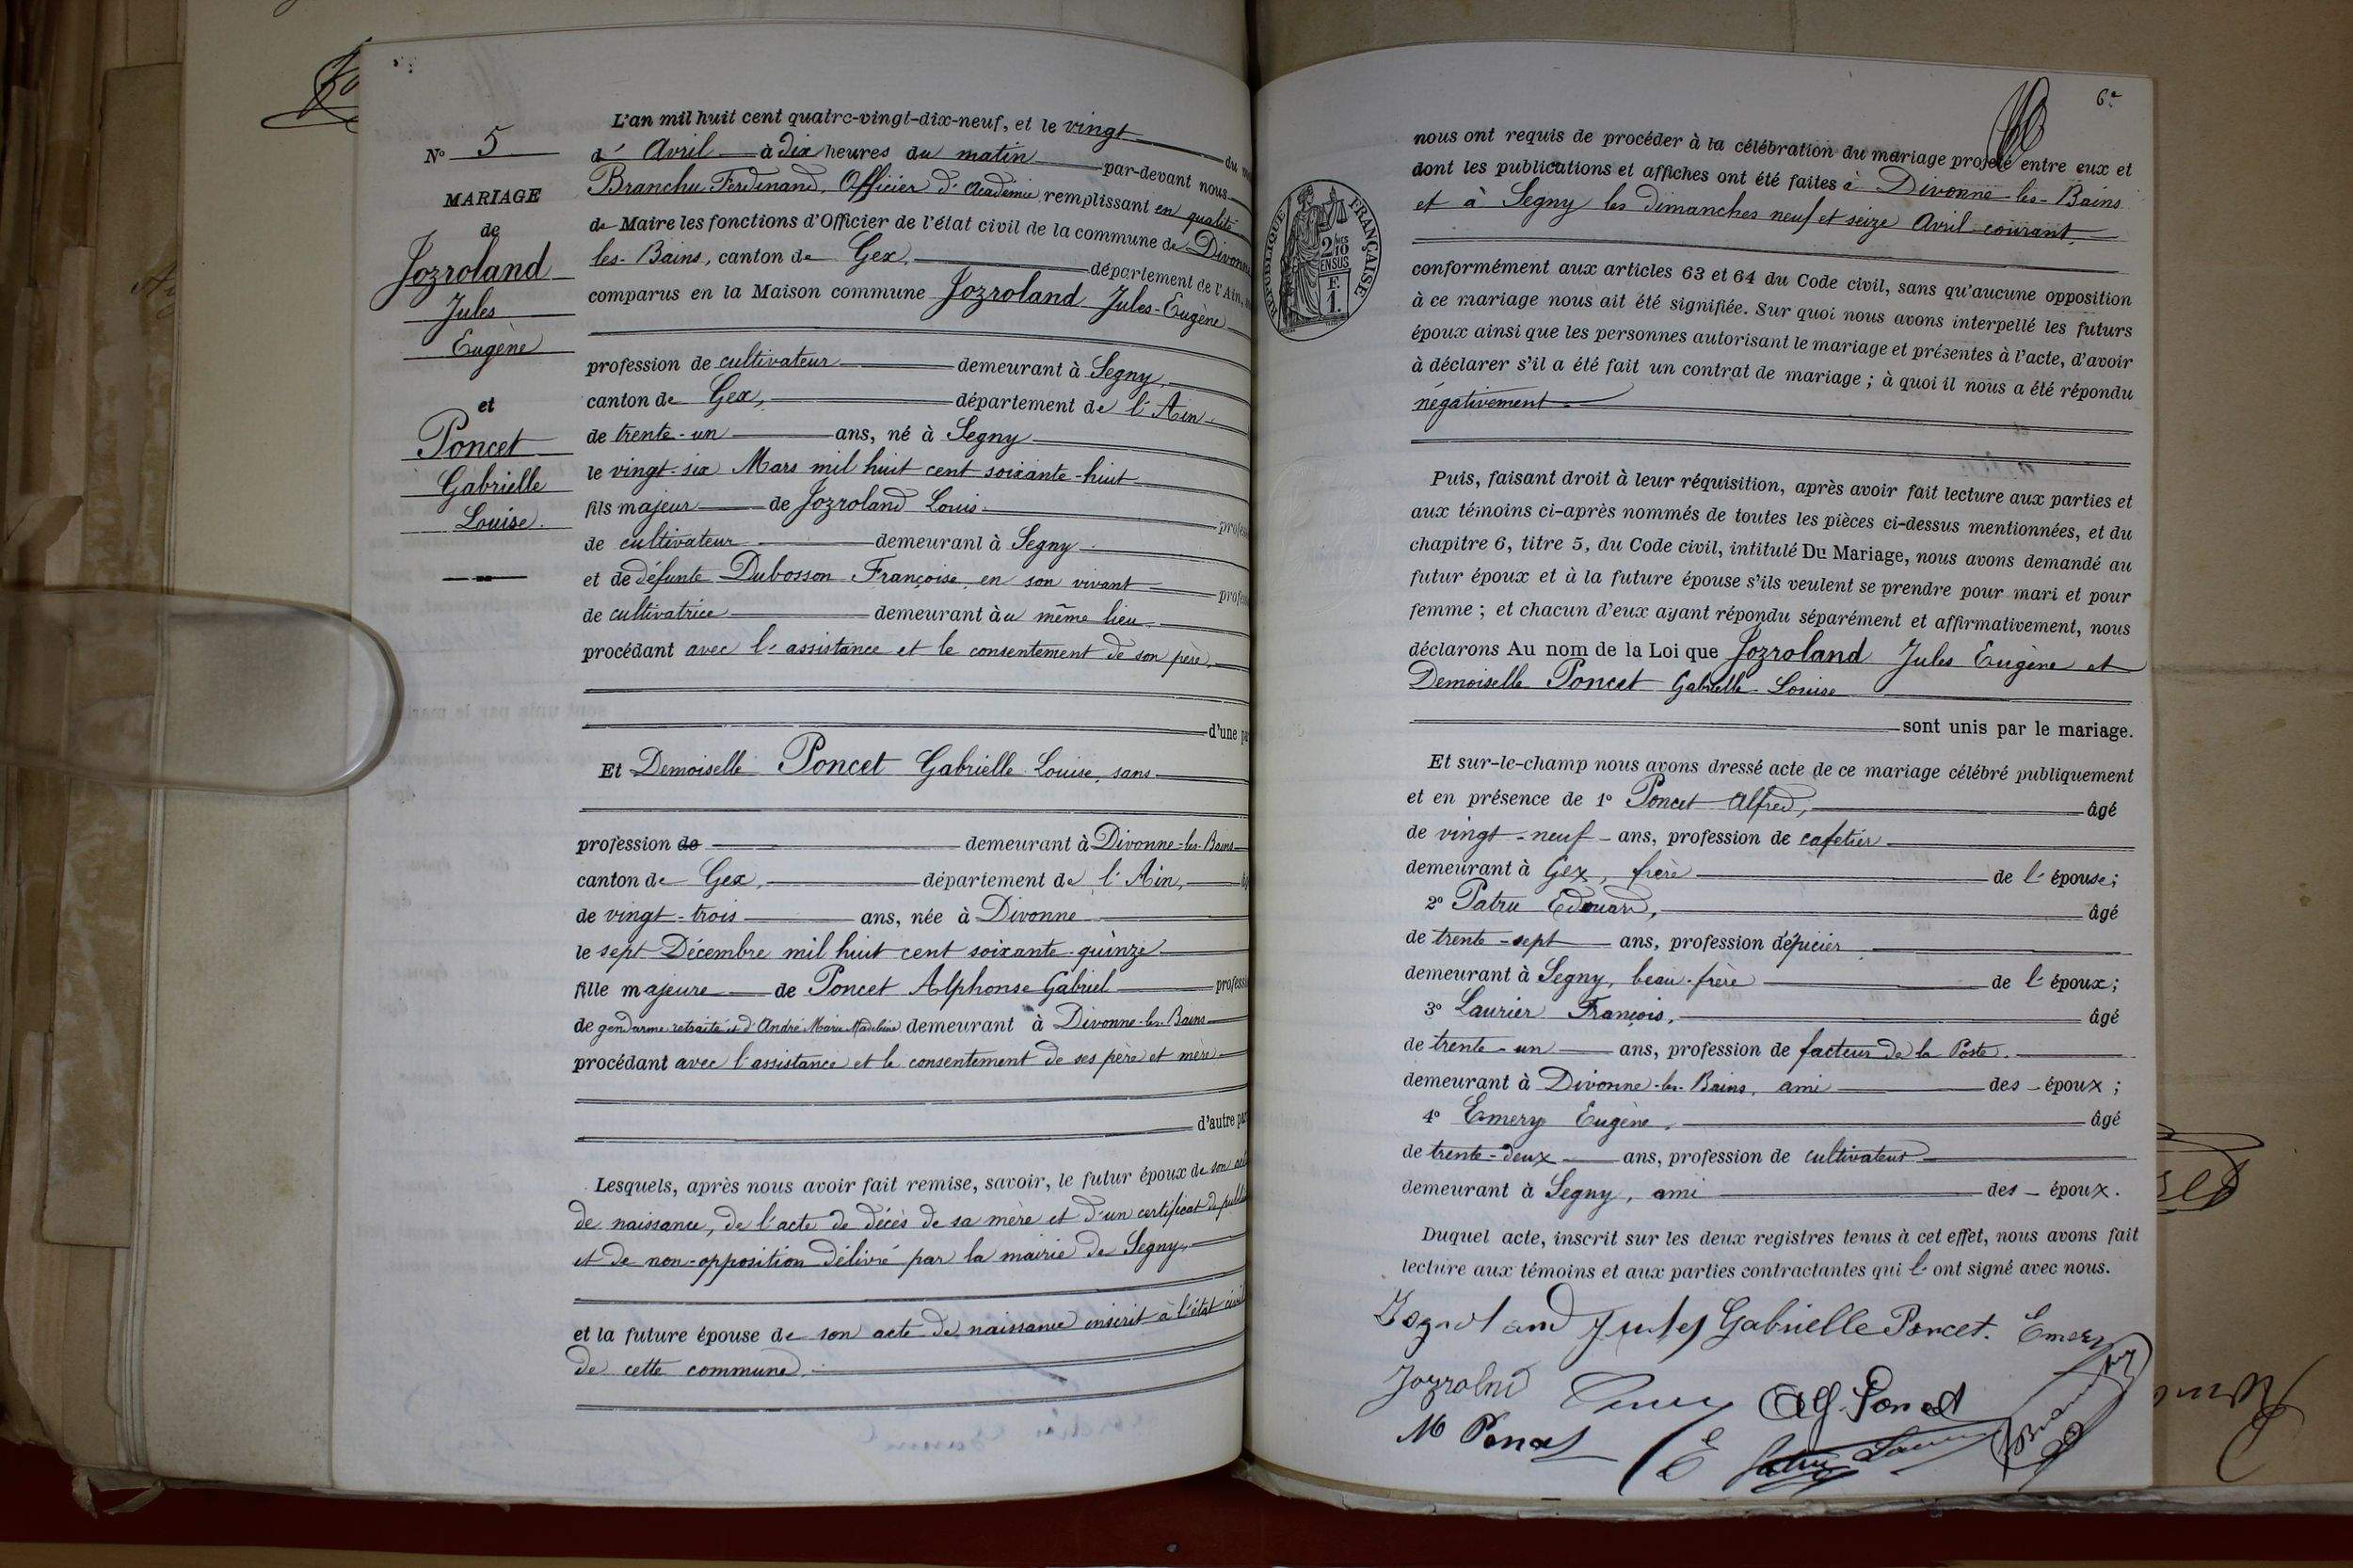 N° 5
MARIAGE
de
Jozroland
Jules
Eugène
et
Poncet
Gabrielle
Louise.
L'an mil huit cent quatre-vingt-dix-neuf, et le vingt du
d'Avril à dix heures du matin par-devant nous
Branchu Ferdinand, Officier d'Académie remplissant en qualité
de Maire les fonctions d'Officier de l'état civil de la commune de Divonne
les-Bains, canton de Gex, département de l'Ain,
comparus en la Maison commune Jozroland Jules-Eugène
profession de cultivateur demeurant à Segny,
canton de Gex, département de l'Ain
de trente-un ans, né à Segny
le vingt-six Mars mil huit cent soixante-huit
fils majeur de Jozroland Louis
de cultivateur demeurant à Segny
et de défunte Dubosson Françoise, en son vivant
de cultivatrice demeurant au même lieu
procédant avec l'assistance et le consentement de son père,
d'une
Et Demoiselle Poncet Gabrielle Louise, sans
profession de demeurant à Divonne-les-Bains
canton de Gex, département de l'Ain,
de vingt-trois ans, née à Divonne
le sept Décembre mil huit cent soixante-quinze
fille majeure de Poncet Alphonse Gabriel
de gendarme retraité et d'André Marie Madeleine demeurant à Divonne-les-Bains
procédant avec l'assistance et le consentement de ses père et mère
d'autre
Lesquels, après nous avoir fait remise, savoir, le futur époux de son
de naissance, de l'acte de décès de sa mère et d'un certificat de
et de non-opposition délivré par la mairie de Segny,
et la future épouse de son acte de naissance inscrit à l'état civil
de cette commune.
6e
RÉPUBLIQUE FRANÇAISE
2 10
EN SUS
F.
1.
nous ont requis de procéder à la célébration du mariage projeté entre eux et
dont les publications et affiches ont été faites à Divonne-les-Bains
et à Segny les dimanches neuf et seize Avril courant,
conformément aux articles 63 et 64 du Code civil, sans qu'aucune opposition
à ce mariage nous ait été signifiée. Sur quoi nous avons interpellé les futurs
époux ainsi que les personnes autorisant le mariage et présentes à l'acte, d'avoir
à déclarer s'il a été fait un contrat de mariage ; à quoi il nous a été répondu
négativement.
Puis, faisant droit à leur réquisition, après avoir fait lecture aux parties et
aux témoins ci-après nommés de toutes les pièces ci-dessus mentionnées, et du
chapitre 6, titre 5, du Code civil, intitulé Du Mariage, nous avons demandé au
futur époux et à la future épouse s'ils veulent se prendre pour mari et pour
femme ; et chacun d'eux ayant répondu séparément et affirmativement, nous
déclarons Au nom de la Loi que Jozroland Jules Eugène et
Demoiselle Poncet Gabrielle-Louise
sont unis par le mariage.
Et sur-le-champ nous avons dressé acte de ce mariage célébré publiquement
et en présence de 1° Poncet Alfred, âgé
de vingt-neuf ans, profession de cafetier
demeurant à Gex, frère de l'épouse ;
2° Patru Edouard, âgé
de trente-sept ans, profession d'épicier
demeurant à Segny, beau-frère de l'époux ;
3° Laurier François, âgé
de trente-un ans, profession de facteur de la Poste.
demeurant à Divonne-les-Bains, ami des époux ;
4° Emery Eugène, âgé
de trente-deux ans, profession de cultivateur
demeurant à Segny, ami des époux.
Duquel acte, inscrit sur les deux registres tenus à cet effet, nous avons fait
lecture aux témoins et aux parties contractantes qui l'ont signé avec nous.
Jozroland Jules Gabrielle Poncet. Emery
Jozroland Alf. Poncet
M Poncet E Patru